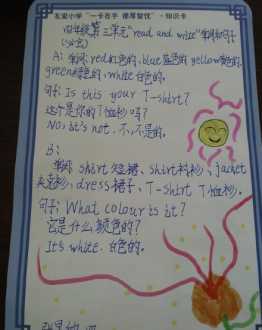 友爱小学"一卡在手 携厚智优"·知识卡
四年级第三单元"read and write"单词和句子
A：单词：red红色的、blue蓝色的 yellow黄色的、
green绿色的、white白色的。
句子：Is this your T-shirt?
这个是你的T恤衫吗？
No, it's not. 不，不是的。
B：
单词 skirt 短裙、shirt衬衫、jacket
夹克衫、dress裙子、T-shirt T恤衫。
句子：What colour is it?
它是什么颜色的？
It's white. 白色的。